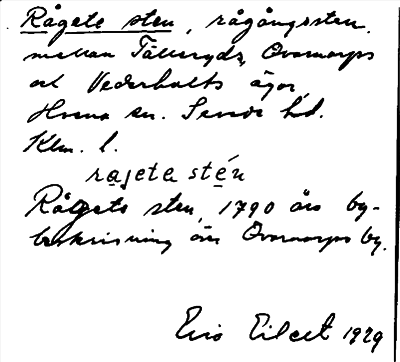 Rågete sten, rågångssten
mellan Tällerydz, Qvarnarps
och Vederhults ägor,
Horna sn. Sevede hd.
Klm. l.
rajeta stén
Rågets sten, 1790 års by-
beskrivning över Qvarnarps by.
1929